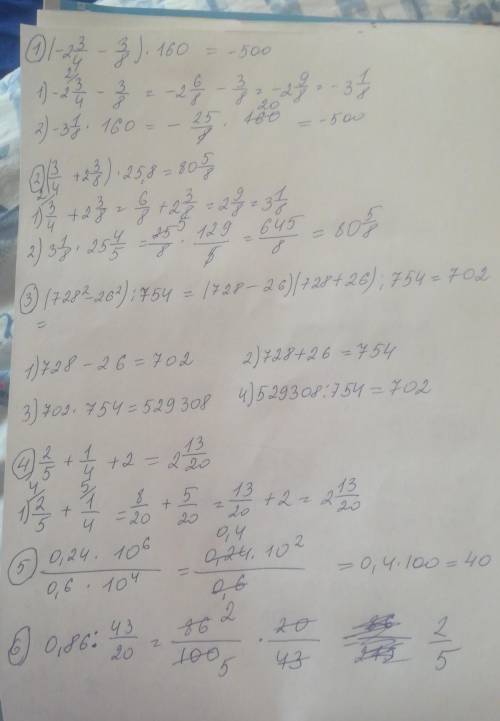 1) (-2 3/4 - 3/8) · 160 = -500
1) -2 3/4 - 3/8 = -2 6/8 - 3/8 = -2 9/8 = -3 1/8
2) -3 1/8 · 160 = - 25/8 · 160 20 = -500
2) (3/4 + 2 3/8) · 25,8 = 80 5/8
1) 3/4 + 2 3/8 = 6/8 + 2 3/8 = 2 9/8 = 3 1/8
2) 3 1/8 · 25 4/5 = 25 5/8 · 129/5 = 645/8 = 80 5/8
3) (728² - 26²) : 754 = (728 - 26)(728 + 26) : 754 = 702
=
1) 728 - 26 = 702 2) 728 + 26 = 754
3) 702 · 754 = 529308 4) 529308 : 754 = 702
4) 2/5 + 1/4 + 2 = 2 13/20
1) 4 2/5 + 5 1/4 = 8/20 + 5/20 = 13/20 + 2 = 2 13/20
5) 0,24 · 10⁶ / 0,6 · 10⁴ = 0,4 0,24 · 10² / 0,6 = 0,4 · 100 = 40
6) 0,86 : 43/20 = 86 2/100 5 · 20/43 2/5